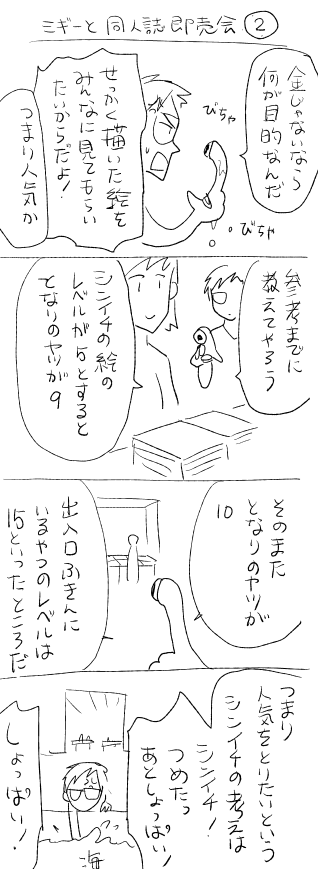 ミギーと同人誌即売会②
金じゃないなら
何が目的なんだ
ぴちゃ
ぴちゃ
せっかく描いた絵を
みんなに見てもらい
たいからだよ！
つまり人気か
参考までに
教えてやろう
シンイチの絵の
レベルが5とすると
となりのヤツが9
そのまた
となりのヤツが
10
出入口ふきんに
いるやつのレベルは
15といったところだ
つまり
人気をとりたいという
シンイチの考えは
シンイチ！
つめたっ
あとしょっぱい！
しょっぱい！
海